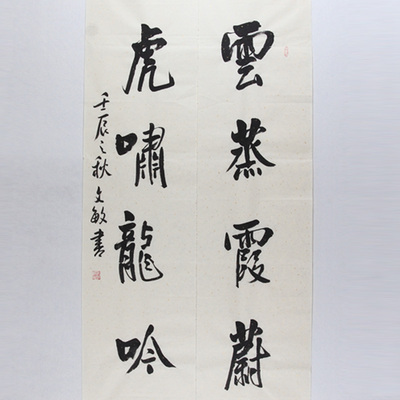 雲蒸霞蔚
虎嘯龍吟
壬辰之秋文敏書